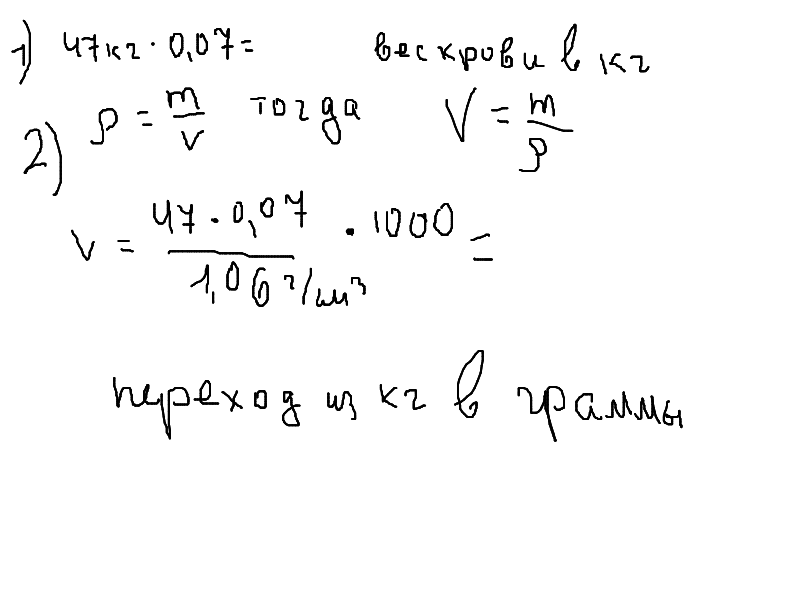 1) 47кг · 0,07 = вес крови в кг
2) ρ = m/v тогда V = m/ρ
v = 47 · 0,07 / 1,06 г/см³ · 1000 =
переход из кг в граммы